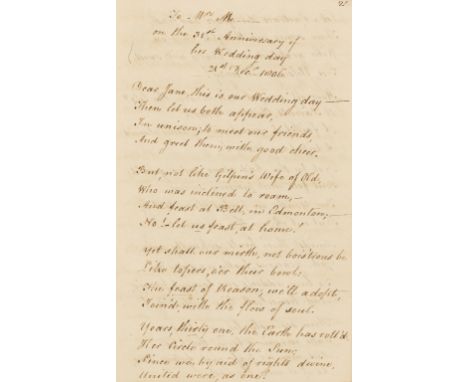 25
To Mrs M——
on the 31st Anniversary of
her Wedding day
21st Decr 1806
Dear Jane, this is our Wedding day—
Then let us both appear,
In unison, to meet our friends,
And greet them, with good cheer.
But, not like Gilpin's Wife of Old,
Who was inclined to roam,—
And feast at Bell, in Edmonton,—
No!—let us feast, at home!
Yet shall our mirth, not boist'rous be
Like topers, o'er their bowl
The feast of Reason, we'll adopt,
Join'd, with the flow of soul.
Years, thirty one, the Earth has roll'd
Her Circle round the Sun,
Since we, by aid of rights divine,
United were, as one!